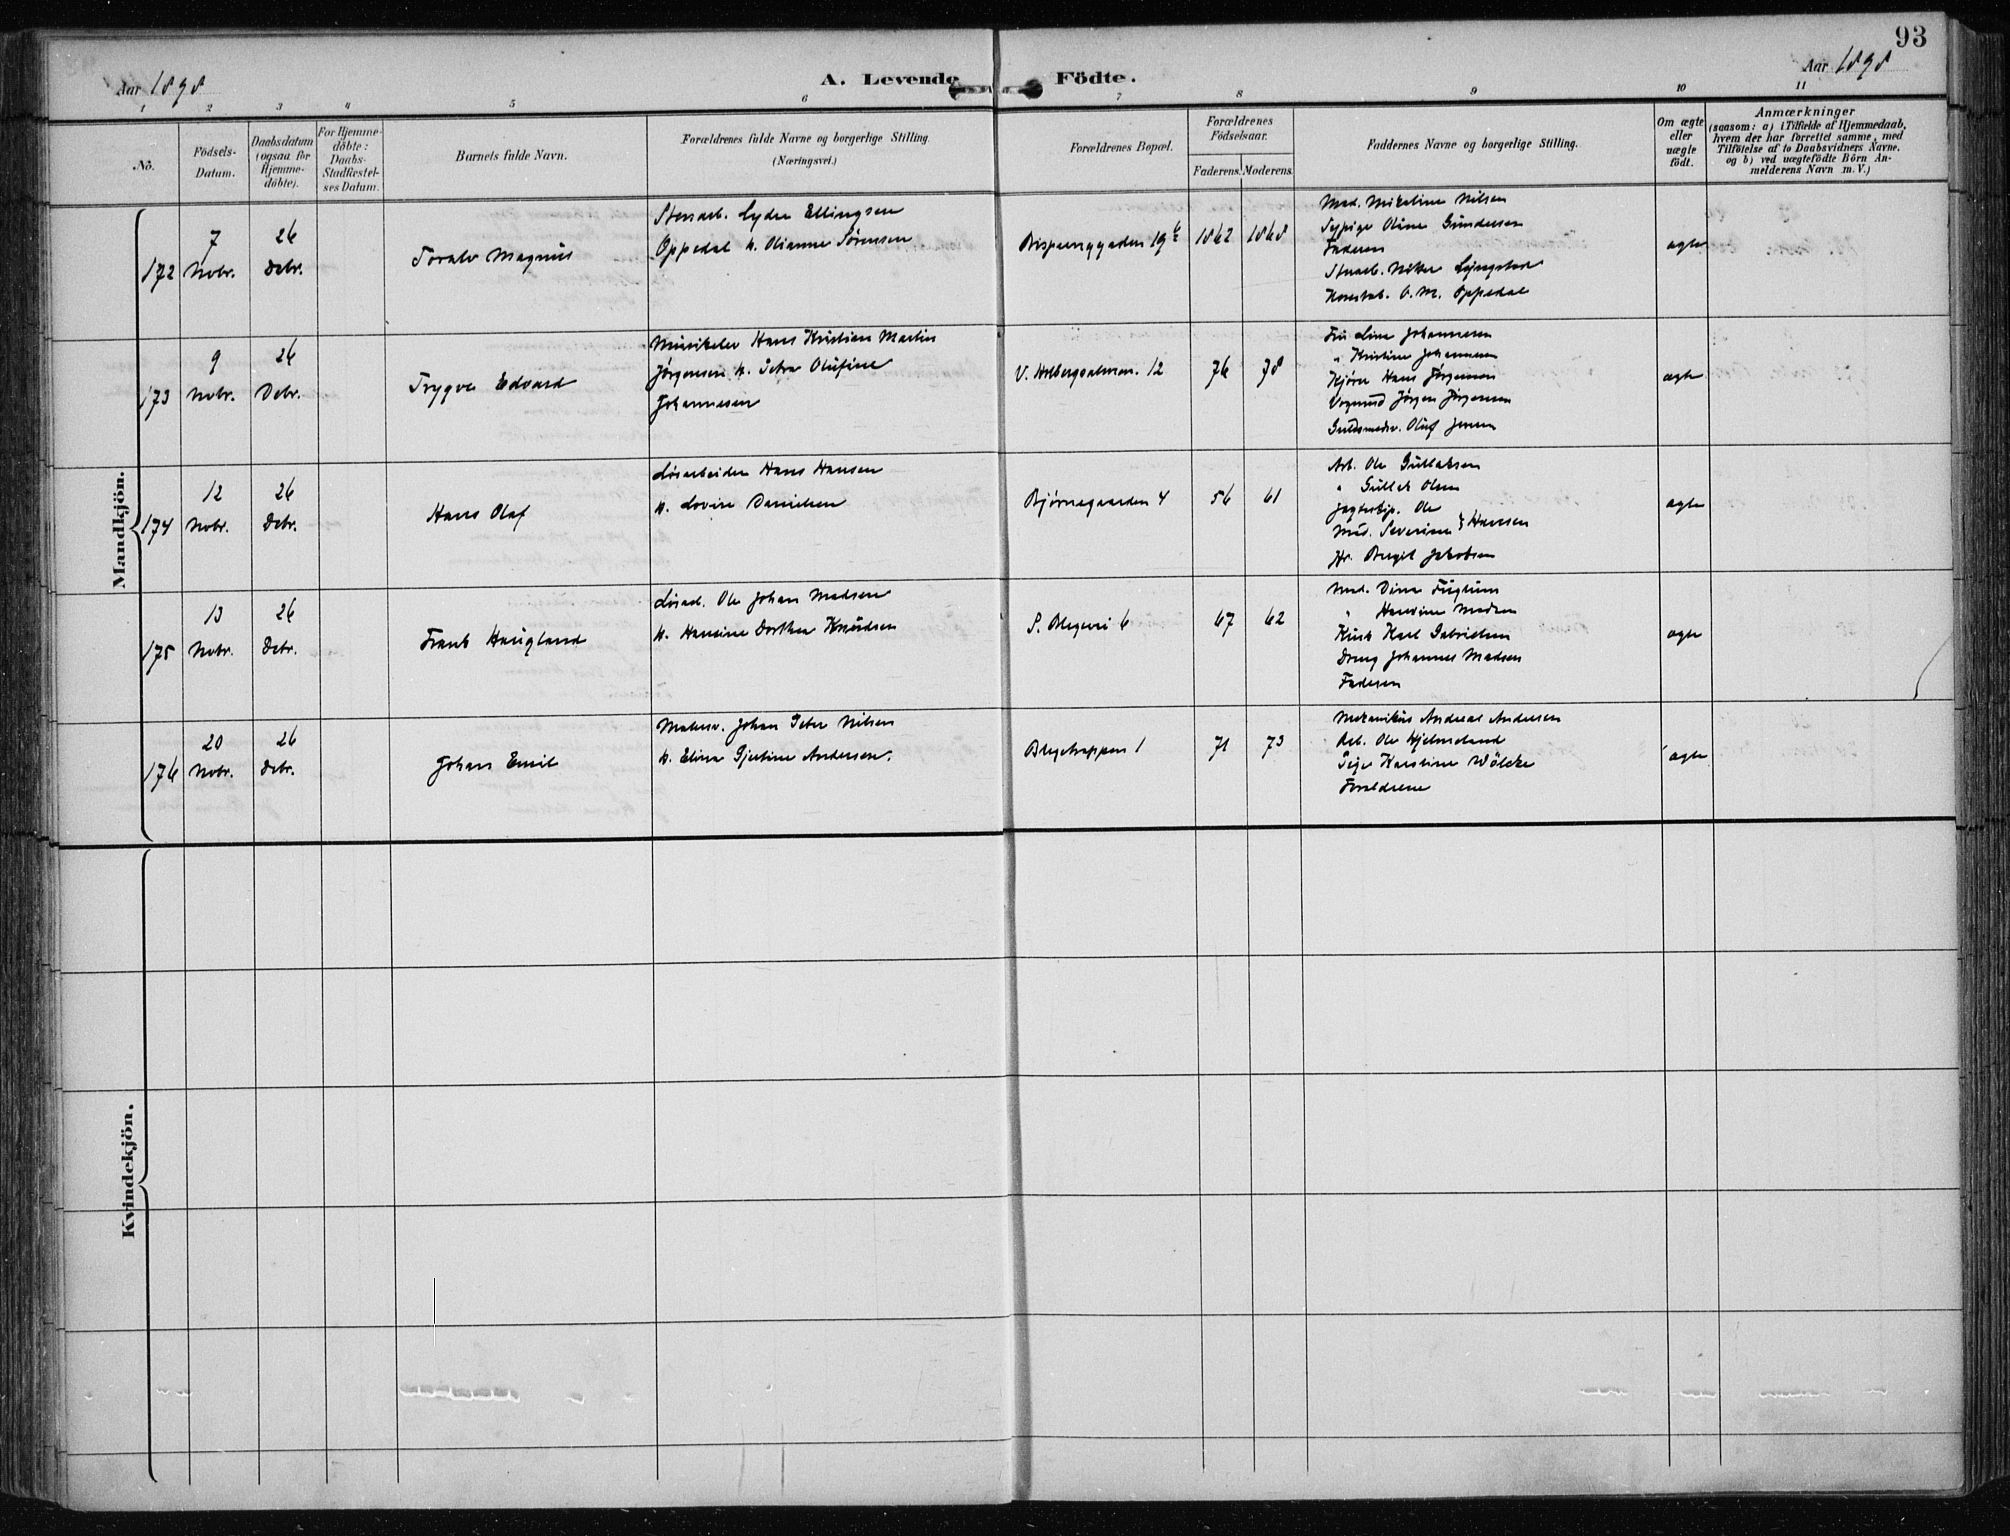 93
Aar 1898
A. Levende Födte.
Aar 1898
1 2 3 4 5 6 7 8 9 10 11
No.
Födsels-Datum.
Daabsdatum (ogsaa for Hjemme-döbte).
For Hjemme-döbte: Daabs-Stadfæstel-ses Datum.
Barnets fulde Navn.
Forældrenes fulde Navne og borgerlige Stilling.
(Næringsvei.)
Forældrenes Bopæl.
Forældrenes Födselsaar.
Faderens. Moderens.
Faddernes Navne og borgerlige Stilling.
Om ægte eller uægte födt.
Anmærkninger
(saasom: a) i Tilfælde af Hjemmedaab,
hvem der har forrettet samme, med
Tilföielse af to Daabsvidners Navne,
og b) ved uægtefödte Börn An-
melderens Navn m. V.)
Mandkjön.
172
7 Novbr.
26 Debr.
Toralv Magnus
Ellingsen
Oppedal h. Olianne Sørensen
1862 1868
Mad. Mikeline Nilsen
Sypige Oline Gundersen
Faderen
O. M. Oppedal
ægte
173
9 Novbr.
26 Debr.
Trygve Edvard
Hans Kristian Martin
Jørgensen h. Petra Olufine
Johannesen
V. Holbergsalmen. 12
76 78
Fru Line Johannesen
" Kristine Johannesen
Hans Jørgensen
Jørgen Jørgensen
Guldsmedsv. Oluf Jensen
ægte
174
12 Novbr.
26 Debr.
Hans Olaf
Løsarbeider Hans Hansen
h. Lovise Danielsen
Bjørnegaarden 4
56 61
Arb. Ole Gullaksen
" Gullak Olsen
Ole
Mad. Severine } Hansen
Birgit Jakobsen
ægte
175
13 Novbr.
26 Debr.
Frank Haugland
Løsarb. Ole Johan Madsen
h. Hansine Dorthea Knudsen
S. Blegevei 6
67 62
Mad. Dina
" Hansine Madsen
Kusk Karl Gabrielsen
Dreng Johannes Madsen
Faderen
ægte
176
20 Novbr.
26 Debr.
Johan Emil
Malersv. Johan Peter Nilsen
h. Elina Gjertine Andersen.
Blegetrappen 1
71 73
Mekanikus Andreas Andersen
Arb. Ole Hjelmeland
Pige Karstine Wölcke
Forældrene
ægte
Kvindekjön.